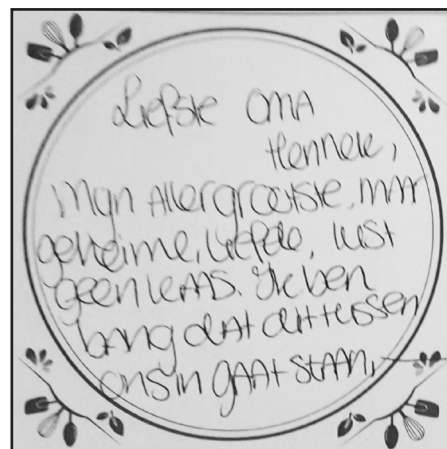 Liefste OMA
Hennele,
Mijn Allergrootste, maar
geheime, liefde, lust
geen kaas. Ik ben
bang dat dat tussen
ons in gaat staan,